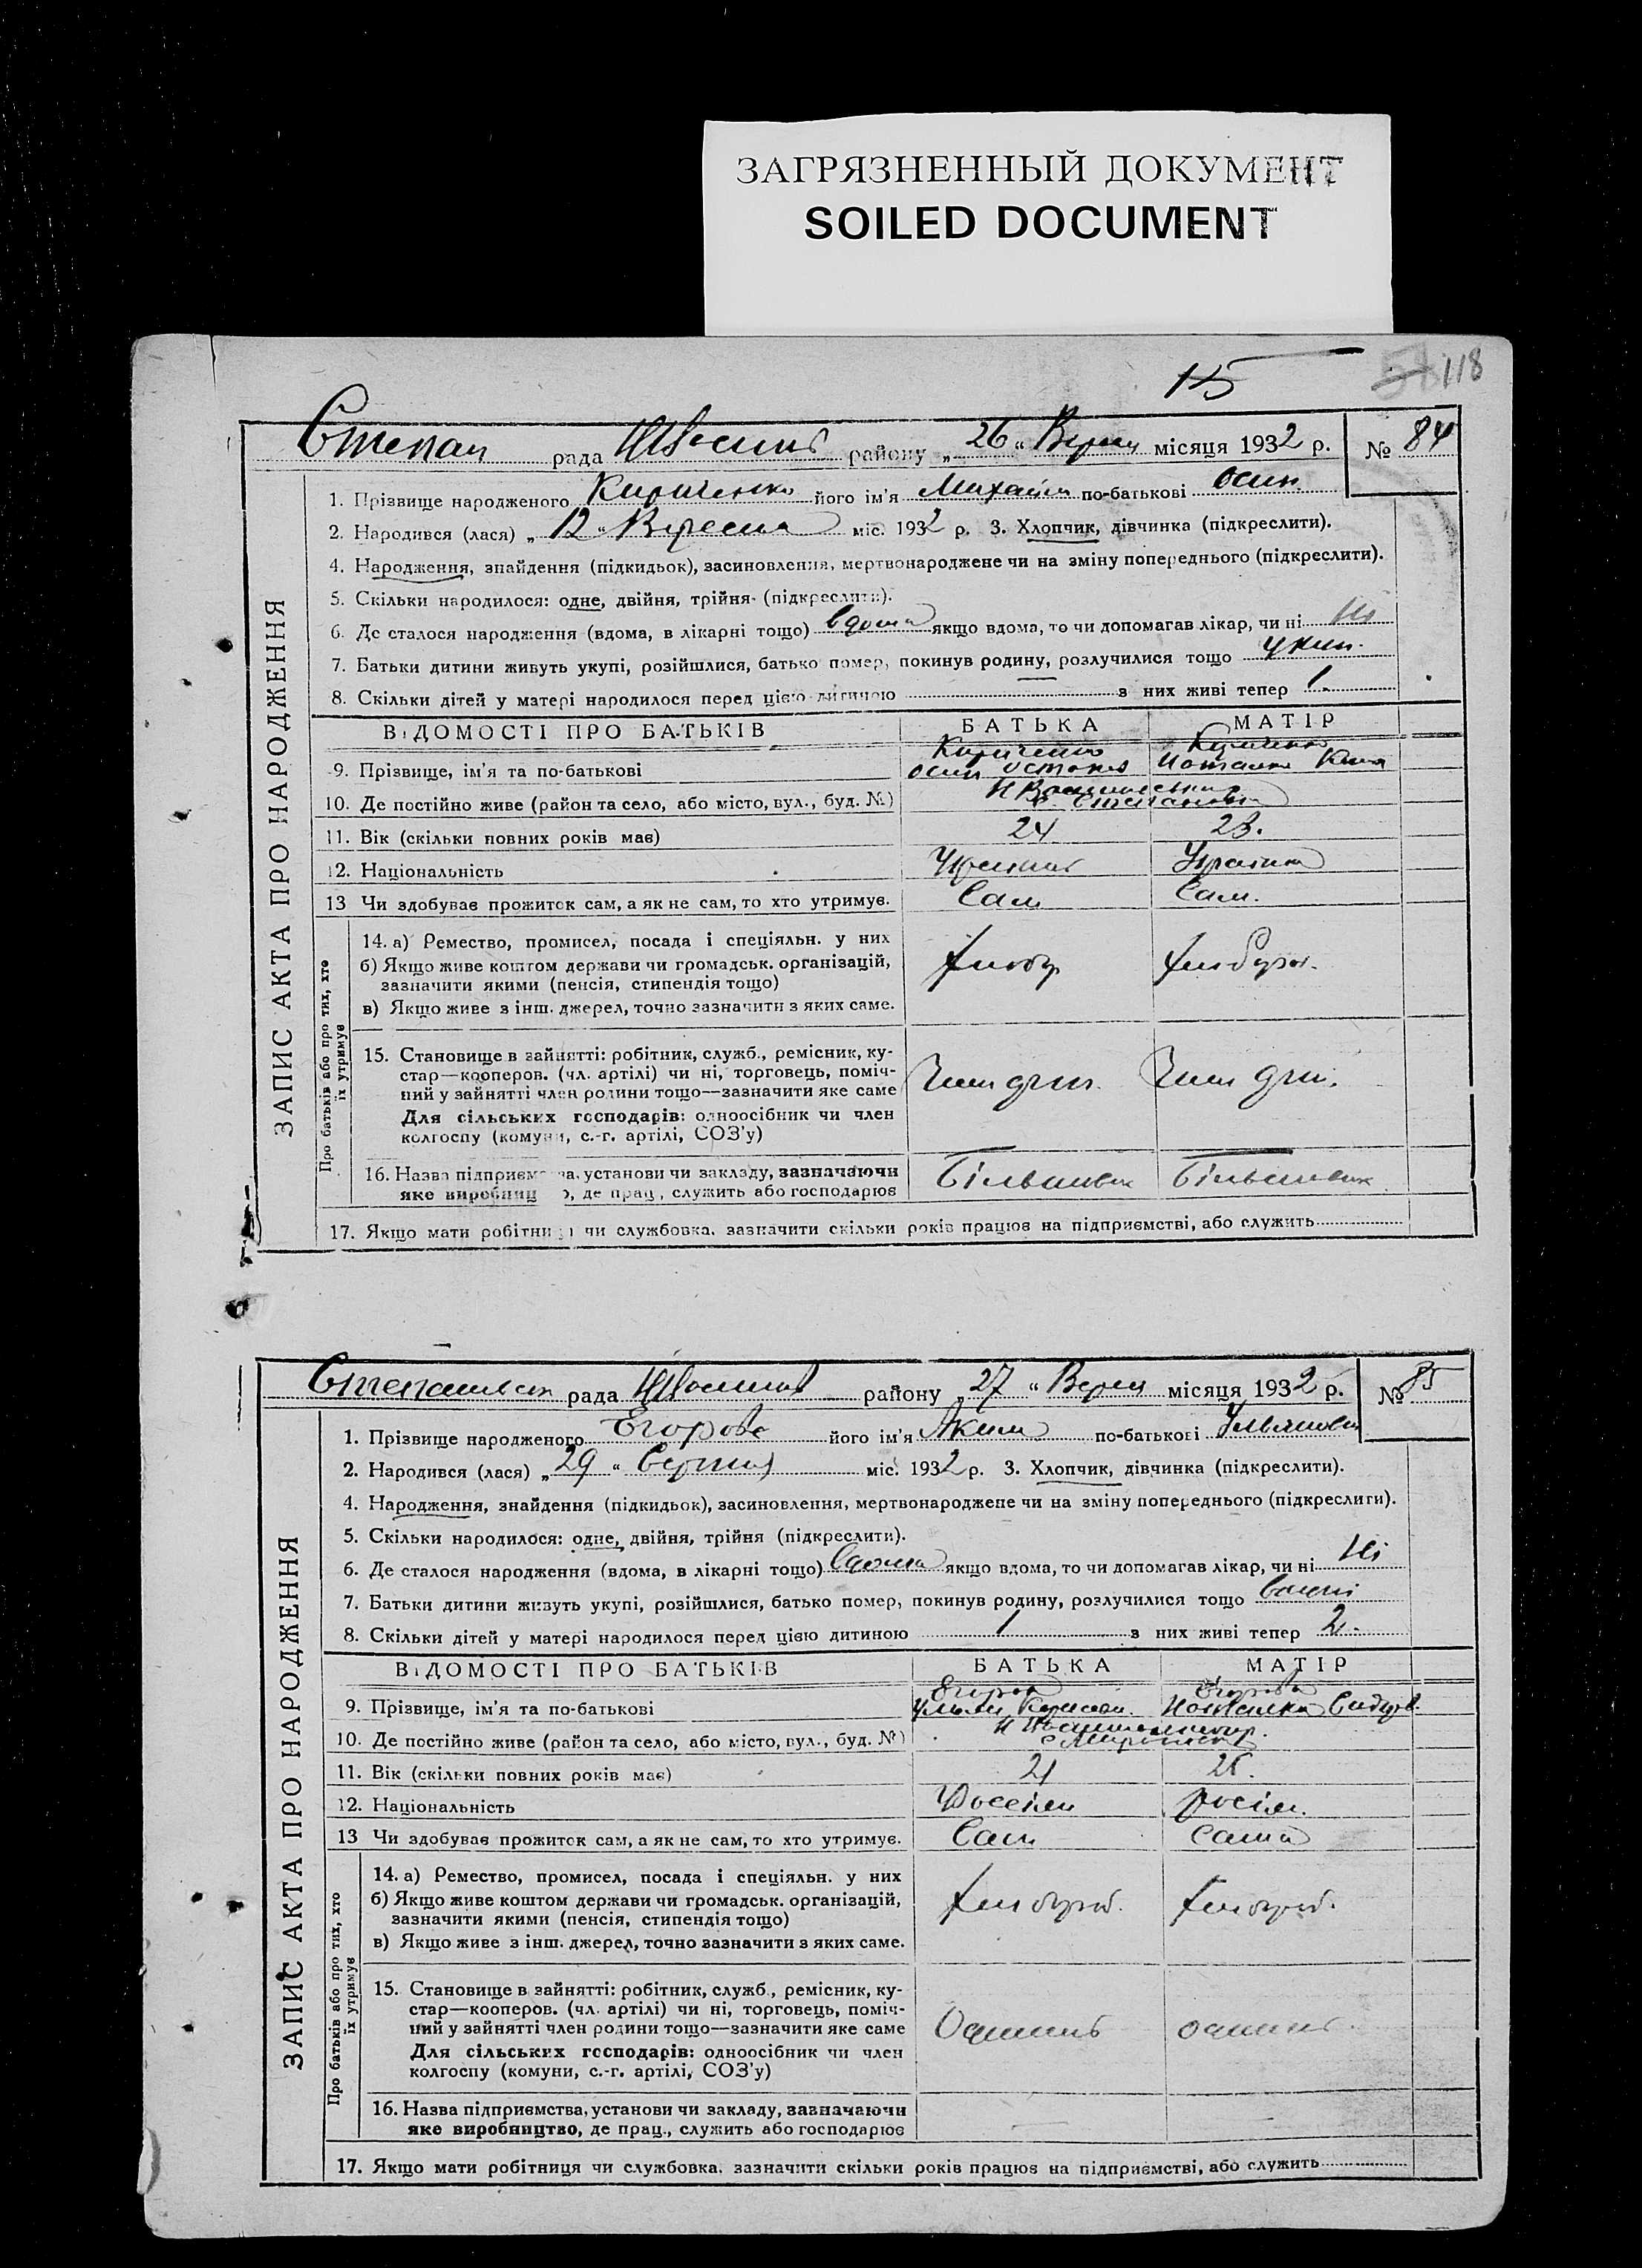 ЗАГРЯЗНЕННЫЙ ДОКУМЕНТ
SOILED DOCUMENT
15 118
Степан рада району „26“ Верес місяця 1932 р. № 84
ЗАПИС АКТА ПРО НАРОДЖЕННЯ
1. Прізвище народженого Кириченко його ім'я Михайло по-батькові Осип.
2. Народився (лася) „12“ Вересня міс. 1932 р. 3. Хлопчик, дівчинка (підкреслити).
4. Народження, знайдення (підкидьок), засиновлення, мертвонароджене чи на зміну попереднього (підкреслити).
5. Скільки народилося: одне, двійня, трійня (підкреслити).
6. Де сталося народження (вдома, в лікарні тощо) вдома якщо вдома, то чи допомагав лікар, чи ні Ні
7. Батьки дитини живуть укупі, розійшлися, батько помер, покинув родину, розлучилися тощо укуп.
8. Скільки дітей у матері народилося перед цією дитиною з них живі тепер 1.
ВІДОМОСТІ ПРО БАТЬКІВ БАТЬКА МАТІР
Кириченко Кириченко
9. Прізвище, ім'я та по-батькові Осип
10. Де постійно живе (район та село, або місто, вул., буд. №)
11. Вік (скільки повних років має) 24 23.
12. Національність
13 Чи здобував прожиток сам, а як не сам, то хто утримує. Сам Сам.
Про батьків або про тих, хто їх утримує
14. а) Ремество, промисел, посада і спеціяльн. у них
б) Якщо живе коштом держави чи громадськ. організацій,
зазначити якими (пенсія, стипендія тощо)
в) Якщо живе з інш. джерел, точно зазначити з яких саме.
15. Становище в зайнятті: робітник, служб., ремісник, ку-
стар—кооперов. (чл. артілі) чи ні, торговець, поміч-
ний у зайнятті член родини тощо—зазначити яке саме
Для сільських господарів: одноосібник чи член
колгоспу (комуни, с.-г. артілі, СОЗ'у)
16. Назва підприємства, установи чи закладу, зазначаючи
яке виробництво, де прац., служить або господарює
17. Якщо мати робітниця чи службовка, зазначити скільки років працює на підприємстві, або служить
рада району „27“ Верес місяця 1932 р. № 85
ЗАПИС АКТА ПРО НАРОДЖЕННЯ
1. Прізвище народженого Егоров його ім'я Яким по-батькові
2. Народився (лася) „29“ Серпня міс. 1932 р. 3. Хлопчик, дівчинка (підкреслити).
4. Народження, знайдення (підкидьок), засиновлення, мертвонароджене чи на зміну попереднього (підкреслити).
5. Скільки народилося: одне, двійня, трійня (підкреслити).
6. Де сталося народження (вдома, в лікарні тощо) вдома якщо вдома, то чи допомагав лікар, чи ні Ні
7. Батьки дитини живуть укупі, розійшлися, батько помер, покинув родину, розлучилися тощо
8. Скільки дітей у матері народилося перед цією дитиною 1 з них живі тепер 2.
ВІДОМОСТІ ПРО БАТЬКІВ БАТЬКА МАТІР
Егоров Егорова
9. Прізвище, ім'я та по-батькові
10. Де постійно живе (район та село, або місто, вул., буд. №)
11. Вік (скільки повних років має) 21
12. Національність
13 Чи здобував прожиток сам, а як не сам, то хто утримує. Сам Сама
Про батьків або про тих, хто їх утримує
14. а) Ремество, промисел, посада і спеціяльн. у них
б) Якщо живе коштом держави чи громадськ. організацій,
зазначити якими (пенсія, стипендія тощо)
в) Якщо живе з інш. джерел, точно зазначити з яких саме.
15. Становище в зайнятті: робітник, служб., ремісник, ку-
стар—кооперов. (чл. артілі) чи ні, торговець, поміч-
ний у зайнятті член родини тощо—зазначити яке саме
Для сільських господарів: одноосібник чи член
колгоспу (комуни, с.-г. артілі, СОЗ'у)
16. Назва підприємства, установи чи закладу, зазначаючи
яке виробництво, де прац., служить або господарює
17. Якщо мати робітниця чи службовка, зазначити скільки років працює на підприємстві, або служить